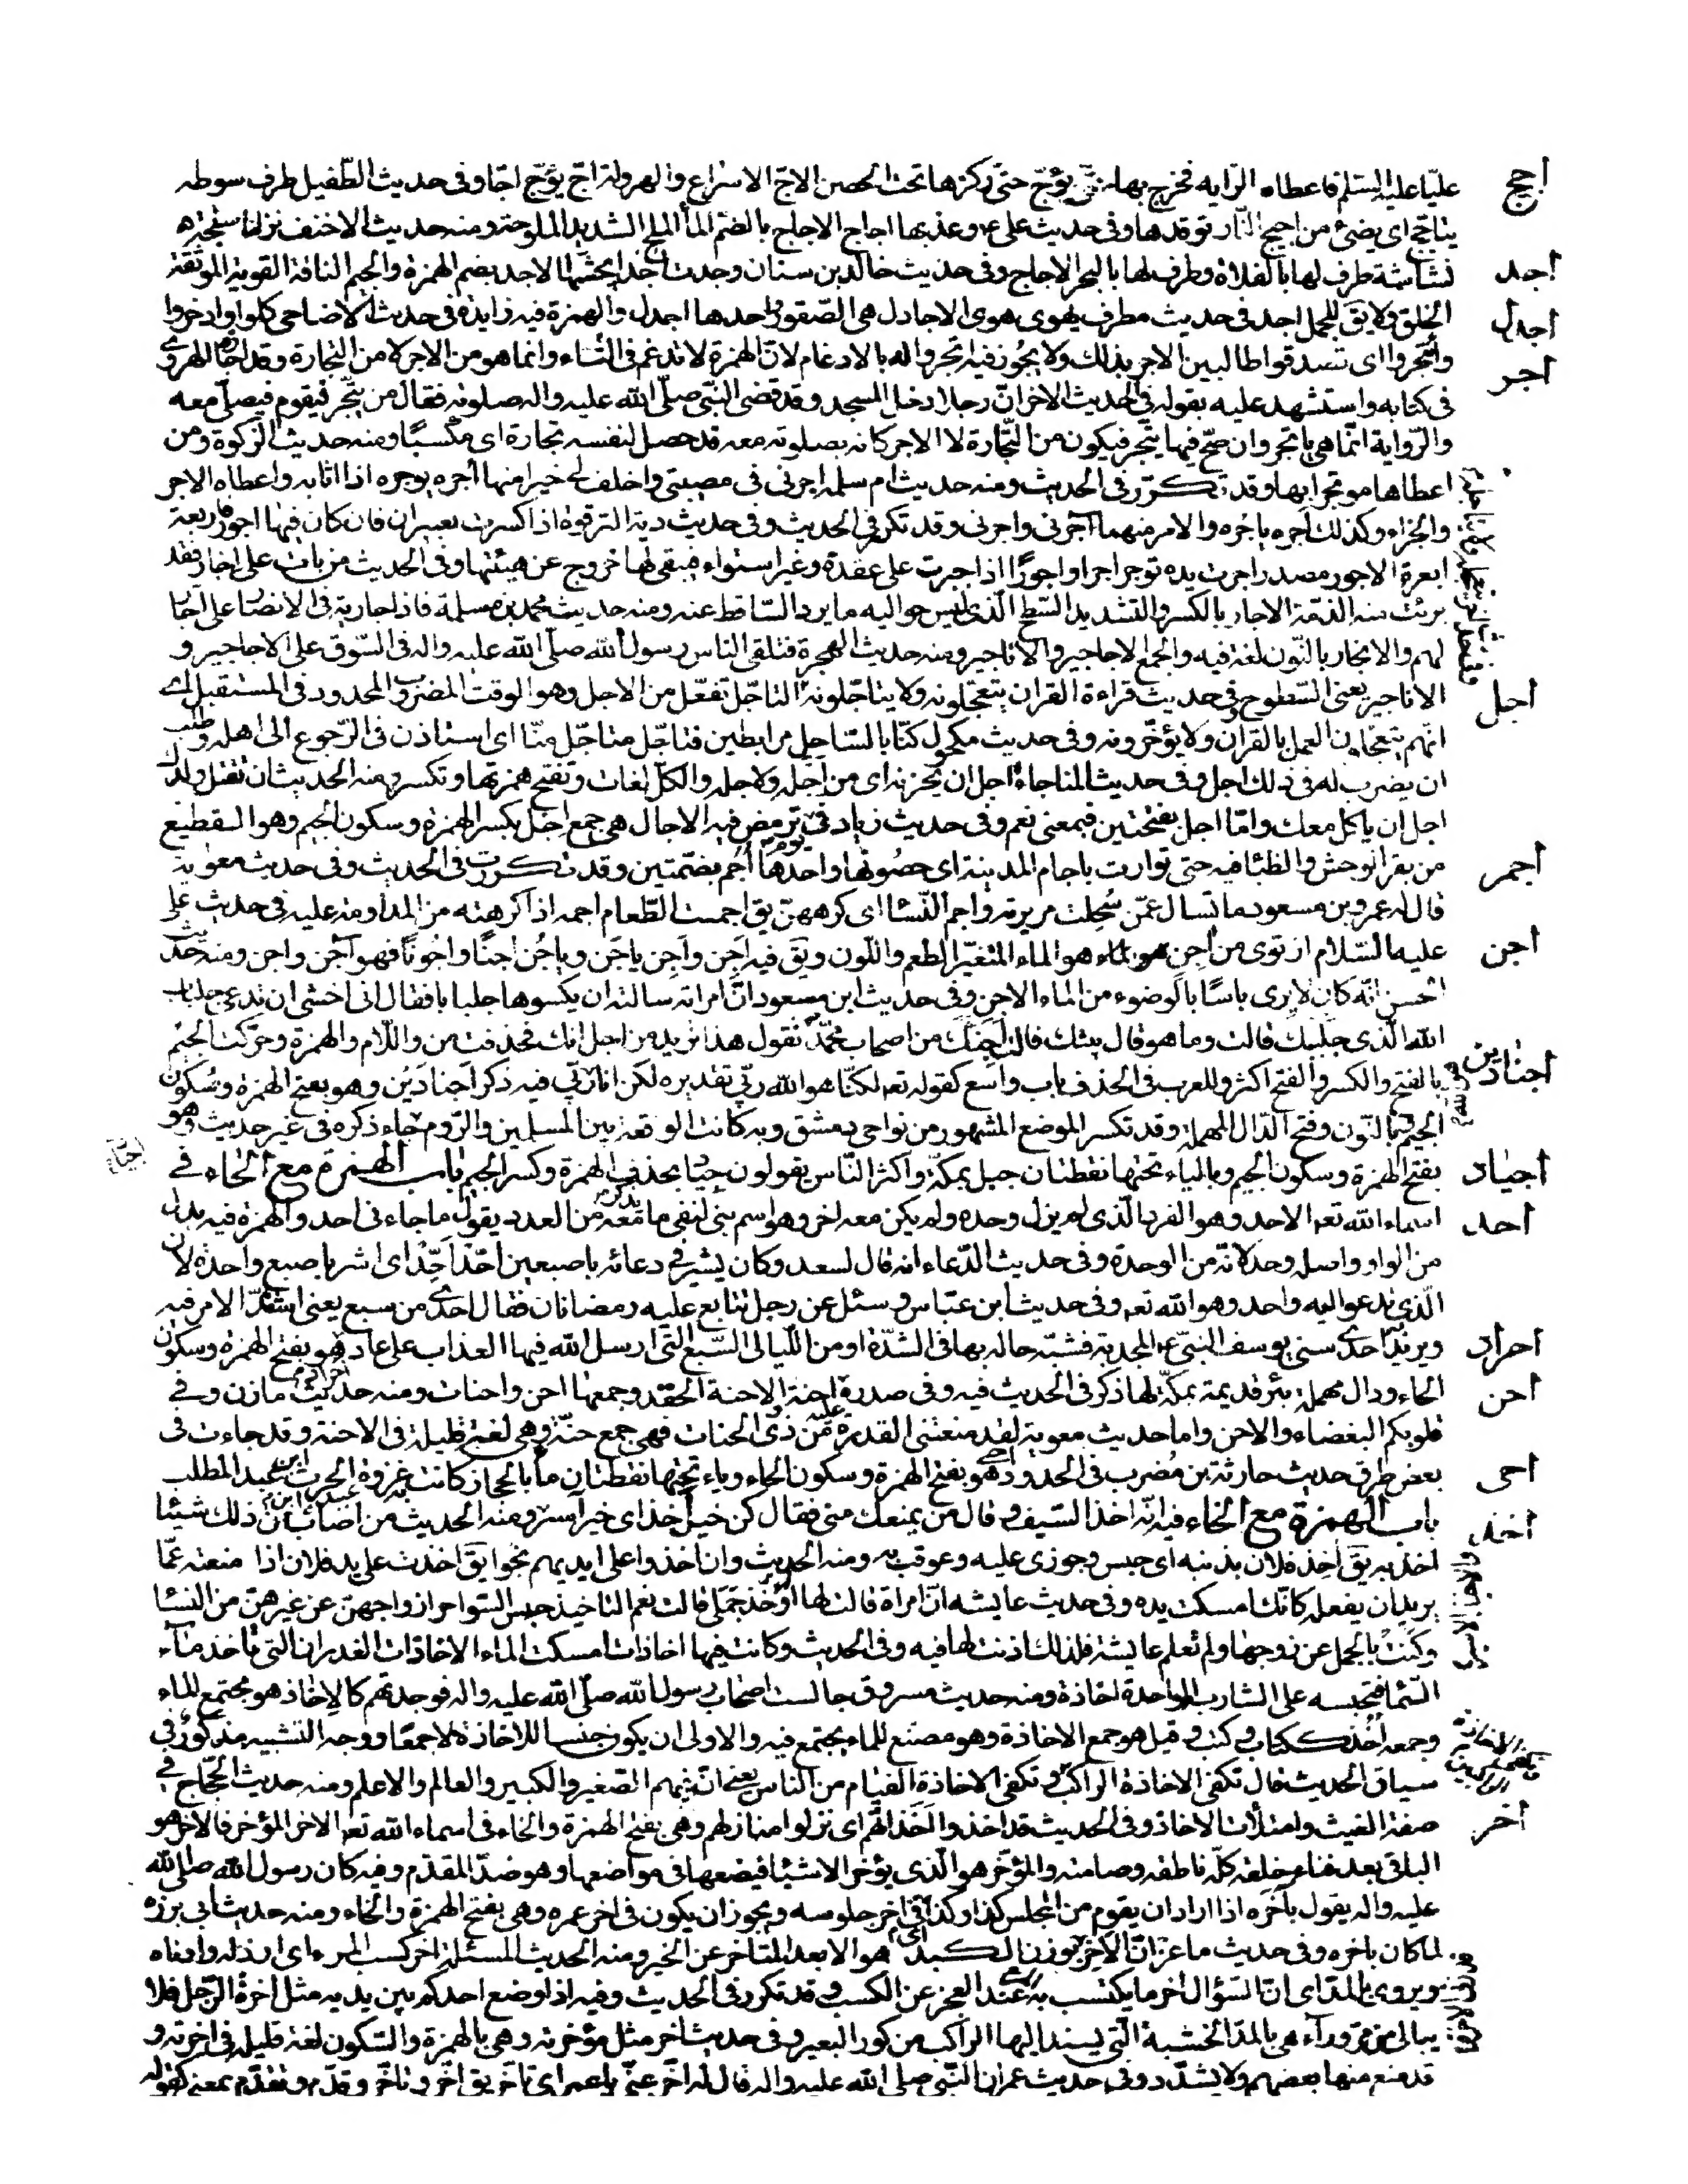 اجج
عليّا عليه السلم فاعطاه الرّايه فخرج بها يؤجّ حتى ركزها تحت الحصن الاجّ الاسراع والهرولة اجّ يؤجّ اجّا وفى حديث الطّفيل طرف سوطه
يتاجج اى يضئ من اجيج النّار توقدها وفى حديث على ع وعذبها اجاج الاجاج بالضمّ الماء الملح الشديد الملوحة ومنه حديث الاحنف نزلنا سبخة
اجد
نشاشة طرف لها بالفلاة وطرف لها بالبحر الاجاج وفى حديث خالد بن سنان وجدت اجدا يحثّها الاجد بضم الهمزة والجيم الناقة القوية الموثقة
اجدل
الخلق ولا يق للجمل اجد فى حديث مطرف يهوى هوى الاجادل هى الصّقور واحدها اجدل والهمزة فيه زايدة فى حديث الاضاحى كلوا وادخروا
اجر
وأتجروا اى تصدقوا طالبين الاجر بذلك ولا يجوز فيه اتجروا له بالادغام لانّ الهمزة لا تدغم فى التاء وانما هو من الاجر لا من التجارة وقد اجازه الهروى
فى كتابه واستشهد عليه بقوله فى الحديث الاخر انّ رجلا دخل المسجد وقد قضى النّبى صلّى الله عليه واله صلوته فقال من يتّجر فيقوم فيصلّى معه
والرّواية انّما هى ياتجر وان صحّ فيها يتّجر فيكون من التّجارة لا الاجر كانه بصلوته معه قد حصل لنفسه تجارة اى مكسبًا ومنه حديث الزكوة ومن
اعطاها موتجرا بها وقد تكرّر فى الحديث ومنه حديث ام سلمه اجرنى فى مصيبتى واخلف لى خيرا منها أجره يوجره اذا اثابه واعطاه الاجر
والجزاء وكذلك اجره ياجُره والامر منهما آجرنى واجرنى وقد تكرر فى الحديث وفى حديث دية الترقوة اذا كسرت بعيران فان كان فيها اجور فاربعة
ابعرة الاجور مصدر اجرت يده توجر اجرا واجورًا اذا جبرت على عقدة وغير استواء فبقى لها خروج عن هيئتها وفى الحديث من بات على اجار فقد
برئت منه الذمّة الاجار بالكسر والتشديد السّطح الّذى ليس حواليه ما يرد السّاقط عنه ومنه حديث محمد بن مسلمة فاذا جارية فى الانصار على اجّار
لهم والانجار بالنّون لغة فيه والجمع الاجاجير والاناجير ومنه حديث الهجرة فتلقى الناس رسول الله صلّى الله عليه واله فى السّوق على الاجاجير و
اجل
الاناجير يعنى السّطوح وفى حديث قراءة القران يتعجلونه ولا يتاجّلونه التاجّل تفعّل من الاجل وهو الوقت المضروب المحدود فى المستقبل اى
انّهم يتعجلون العمل بالقران ولا يؤخّرونه وفى حديث مكحول كنّا بالسّاحل مرابطين فتاجّل متاجّل منّا اى استاذن فى الرّجوع الى اهله وطلب
ان يضرب له فى ذلك اجل وفى حديث المناجاة اجل ان يحزنه اى من اجله ولاجله والكلّ لغات وتفتح همزتها وتكسر ومنه الحديث ان تقتل ولدك
اجل ان ياكل معك وامّا اجل بفتحتين فبمعنى نعم وفى حديث زياد فى يوم ترمض فيه الاجال هى جمع اجل بكسر الهمزة وسكون الجيم وهو القطيع
اجم
من بقر الوحش والظباء فيه حتى توارت باجام المدينة اى حصونها واحدها أجم بضمّتين وقد تكررت فى الحديث وفى حديث معوية
قال له عمرو بن مسعود ما تسال عمّن سُحِلت مريرته واجم النّساء اى كرههن يق اجمت الطّعام اجمه اذا كرهته من المداومة عليه فى حديث على
اجن
عليه السّلام ارتوى من آجن هو الماء المتغيّر الطعم واللّون ويق فيه اجن وأجن ياجَن وياجُن اجنًا واجُونًا فهو آجن واجن ومنه حديث
الحسن انّه كان لا يرى باسًا بالوضوء من الماء الاجن وفى حديث ابن مسعود انّ امراته سالته ان يكسوها جلبابا فقال انى اخشى ان تدعى جلباب
الله الّذى جلببك قالت وما هو قال بيتك قالت اجنّك من اصحاب محمّد تقول هذا تريد من اجل انّك فحذفت من واللّام والهمزة وحركت الجيم
اجنادين
بالفتح والكسر والفتح اكثر وللعرب فى الحذف باب واسع كقوله تعه لكنّا هو الله ربّى تقديره لكن انا ربّى فيه ذكر اجنادَين وهو بفتح الهمزة وسكون
الجيم وبالنّون وفتح الدّال المهملة وقد تكسر الموضع المشهور من نواحى دمشق وبه كانت الوقعة بين المسلمين والرّوم جاء ذكره فى غير حديث وهو
اجياد
بفتح الهمزة وسكون الجيم وبالياء تحتها نقطتان جبل بمكّة واكثر النّاس يقولون جياد بحذف الهمزة وكسر الجيم باب الهمزة مع الحاء فى
احد
اسماء الله تعه الاحد وهو الفرد الّذى لم يزل وحده ولم يكن معه اخر وهو اسم بنى لنفى ما يذكر معه من العدد يقول ما جاءنى احد والهمزة فيه بدل
من الواو واصله وحد لانّه من الوحدة وفى حديث الدّعاء انه قال لسعد وكان يشير فى دعائه باصبعين احّد احّد اى اشر باصبع واحدة لان
الّذى تدعو اليه واحد وهو الله تعه وفى حديث ابن عبّاس وسئل عن رجل تتابع عليه رمضانان فقال احدى من سبع يعنى اشتدّ الامر فيه
احراد
ويريد احدى سنى يوسف النّبى ع المجدبة فشبّه حاله بها فى الشدّة او من اللّيالى السّبع الّتى ارسل الله فيها العذاب على عاد هو بفتح الهمزة وسكون
احن
الحاء ودال مهملة بئر قديمة بمكّة لها ذكر فى الحديث فيه وفى صدره احنة الاحنة الحقد وجمعها احن واحنات ومنه حديث مازن وفى
قلوبكم البغضاء والاحن واما حديث معوية لقد منعتنى القدرة من ذوى الحنات فهى جمع حنة وهى لغية قليلة فى الاحنة وقد جاءت فى
احى
بعض طرق حديث حارثة بن مُضرب فى الحدود هو بفتح الهمزة وسكون الحاء وياء تحتها نقطتان ماء بالحجاز كانت به غزوة عبيدة بن الحرث ابن عبد المطلب
اخذ
باب الهمزة مع الخاء فيه انّه اخذ السّيف وقال من يمنعك منى فقال كن خير آخذ اى خير آسر ومنه الحديث من اصاب من ذلك شيئا
اخذ به يق اخذ فلان بذنبه اى حبس وجوزى عليه وعوقب به ومنه الحديث وان اخذوا على ايديهم نجوا يق اخذت على يد فلان اذا منعته عمّا
يريد ان يفعله كانّك امسكت يده وفى حديث عايشه انّ امراة قالت لها اؤخّذ جملى قالت نعم التاخيذ حبس السّواحر ازواجهنّ عن غيرهنّ من النساء
وكنت بالجمل عن زوجها ولم تعلم عايشة فلذلك اذنت لها فيه وفى الحديث وكانت فيها اخاذات امسكت الماء الاخاذات الغدران التى تاخذ ماء
السّماء فتحبسه على الشارب الواحدة اخاذة ومنه حديث مسروق جالست اصحاب رسول الله صلّى الله عليه واله فوجدتهم كالاخاذ هو مجتمع الماء
وجمعه اخذ ككتاب وكتب وقيل هو جمع الاخاذة وهو مصنع للماء يجتمع فيه والاولى ان يكون جنسا للاخاذة لا جمعًا ووجه التشبيه مذكور فى
سياق الحديث قال تكفى الاخاذة الراكب وتكفى الاخاذة الفيام من الناس يعنى انّ فيهم الصّغير والكبير والعالم والاعلم ومنه حديث الحجّاج فى
اخر
صفة الغيث وامتلأت الاخاذ وفى الحديث قد اخذوا اخذاتهم اى نزلوا منازلهم وهى بفتح الهمزة والخاء فى اسماء الله تعه الاخر المؤخر فالاخر هو
الباقى بعد فناء خلقه كلّه ناطقه وصامته والمؤخّر هو الّذى يؤخر الاشياء فيضعها فى مواضعها وهو ضدّ المقدّم وفيه كان رسول الله صلى الله
عليه واله يقول بأخَرَه اذا اراد ان يقوم من المجلس كذا وكذا اى فى اخر جلوسه ويجوز ان يكون فى اخر عمره وهى بفتح الهمزة والخاء ومنه حديث ابى برزه
لما كان باخره وفى حديث ماعز انّ الاخر بوزن الكبد هو الابعد المتاخر عن الخير ومنه الحديث المسئلة اخر كسب المرء اى ارذله وادناه
ويروى بالمدّ اى انّ السّؤال اخر ما يكتسب به المرء عند العجز عن الكسب وقد تكرر فى الحديث وفيه اذا وضع احدكم بين يديه مثل اخرة الرّحل فلا
يبالى من مرّ وراءه هى بالمدّ الخشبة الّتى يستند اليها الراكب من كور البعير وفى حديث اخر مثل مؤخرته وهى بالهمزة والسّكون لغة قليلة فى اخرته و
قد منع منها بعضهم ولا يشدّد وفى حديث عمر ان النّبى صلى الله عليه واله قال له اخّر عنّى يا عمر اى تاخّر يق اخّر وتاخّر وقدّم وتقدّم بمعنى كقوله